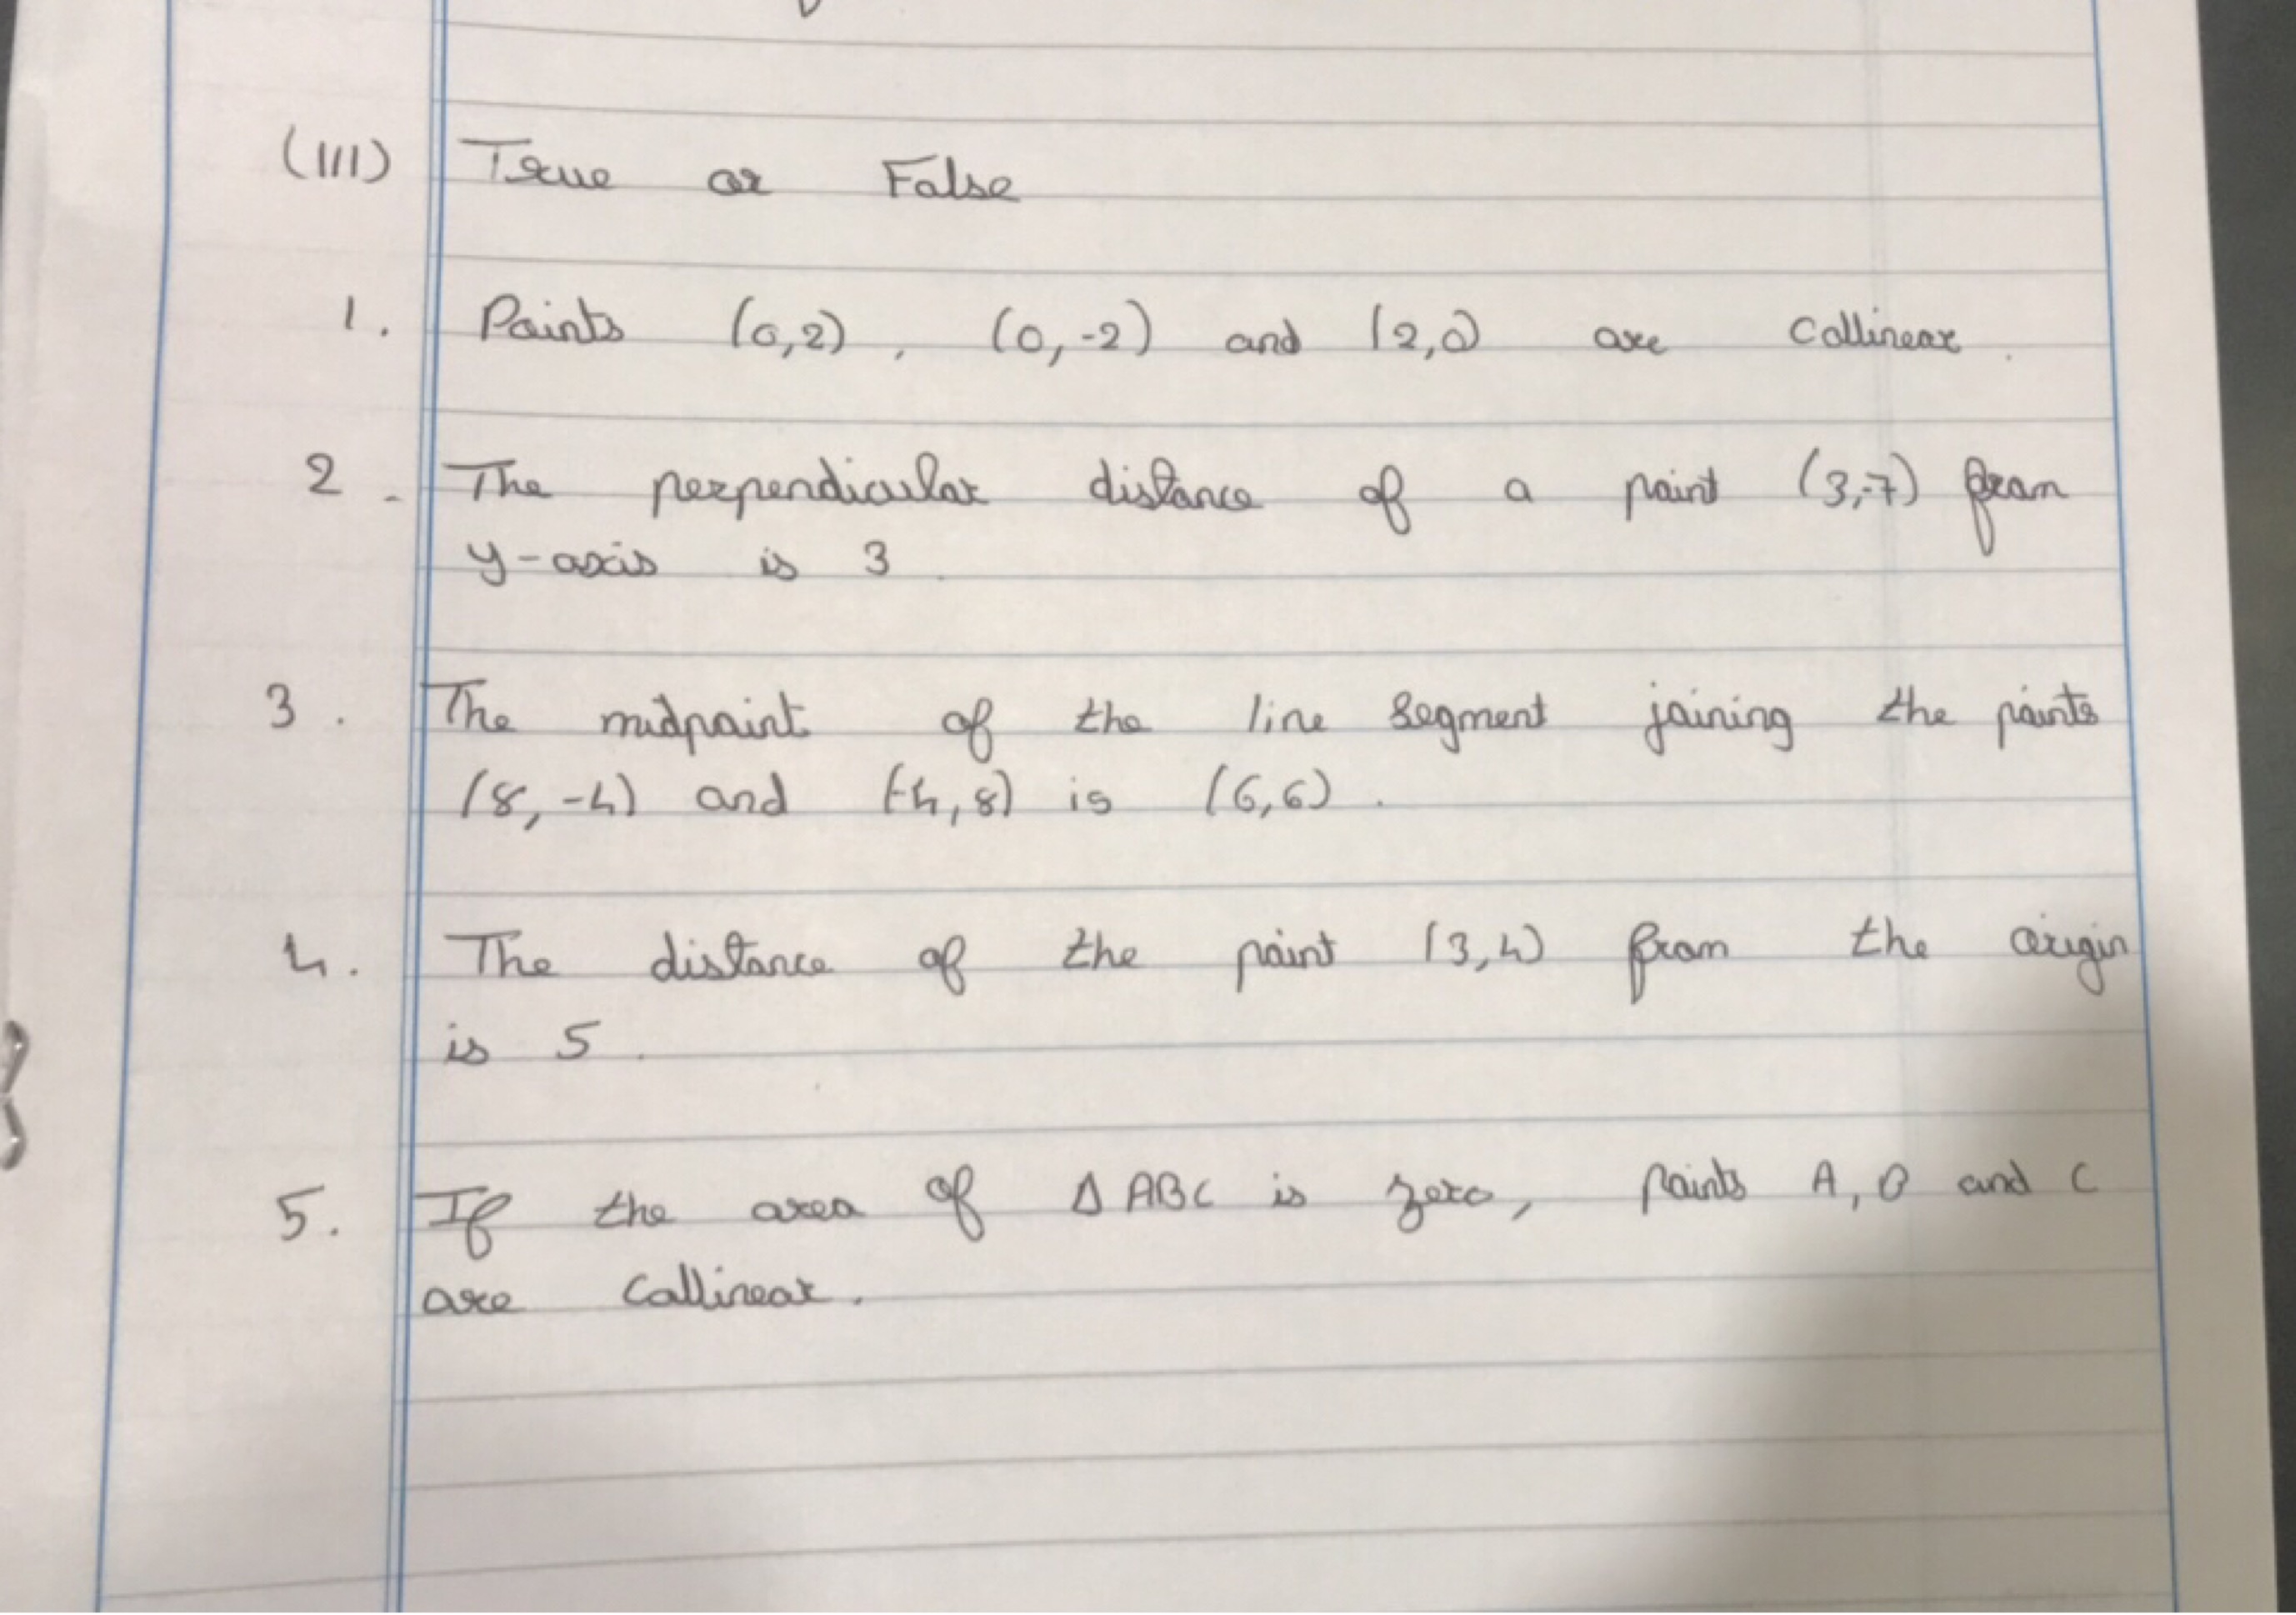 (III) True or False
1. Points (0,2), (0,-2) and (2,0) are collinear.
2. The perpendicular distance of a point (3,-7) from
y-axis is 3.
3. The midpoint of the line segment joining the points
(8,-4) and (-4,8) is (6,6).
4. The distance of the point (3,4) from the origin
is 5.
5. If the area of Δ ABC is zero, points A, B and C
are collinear.